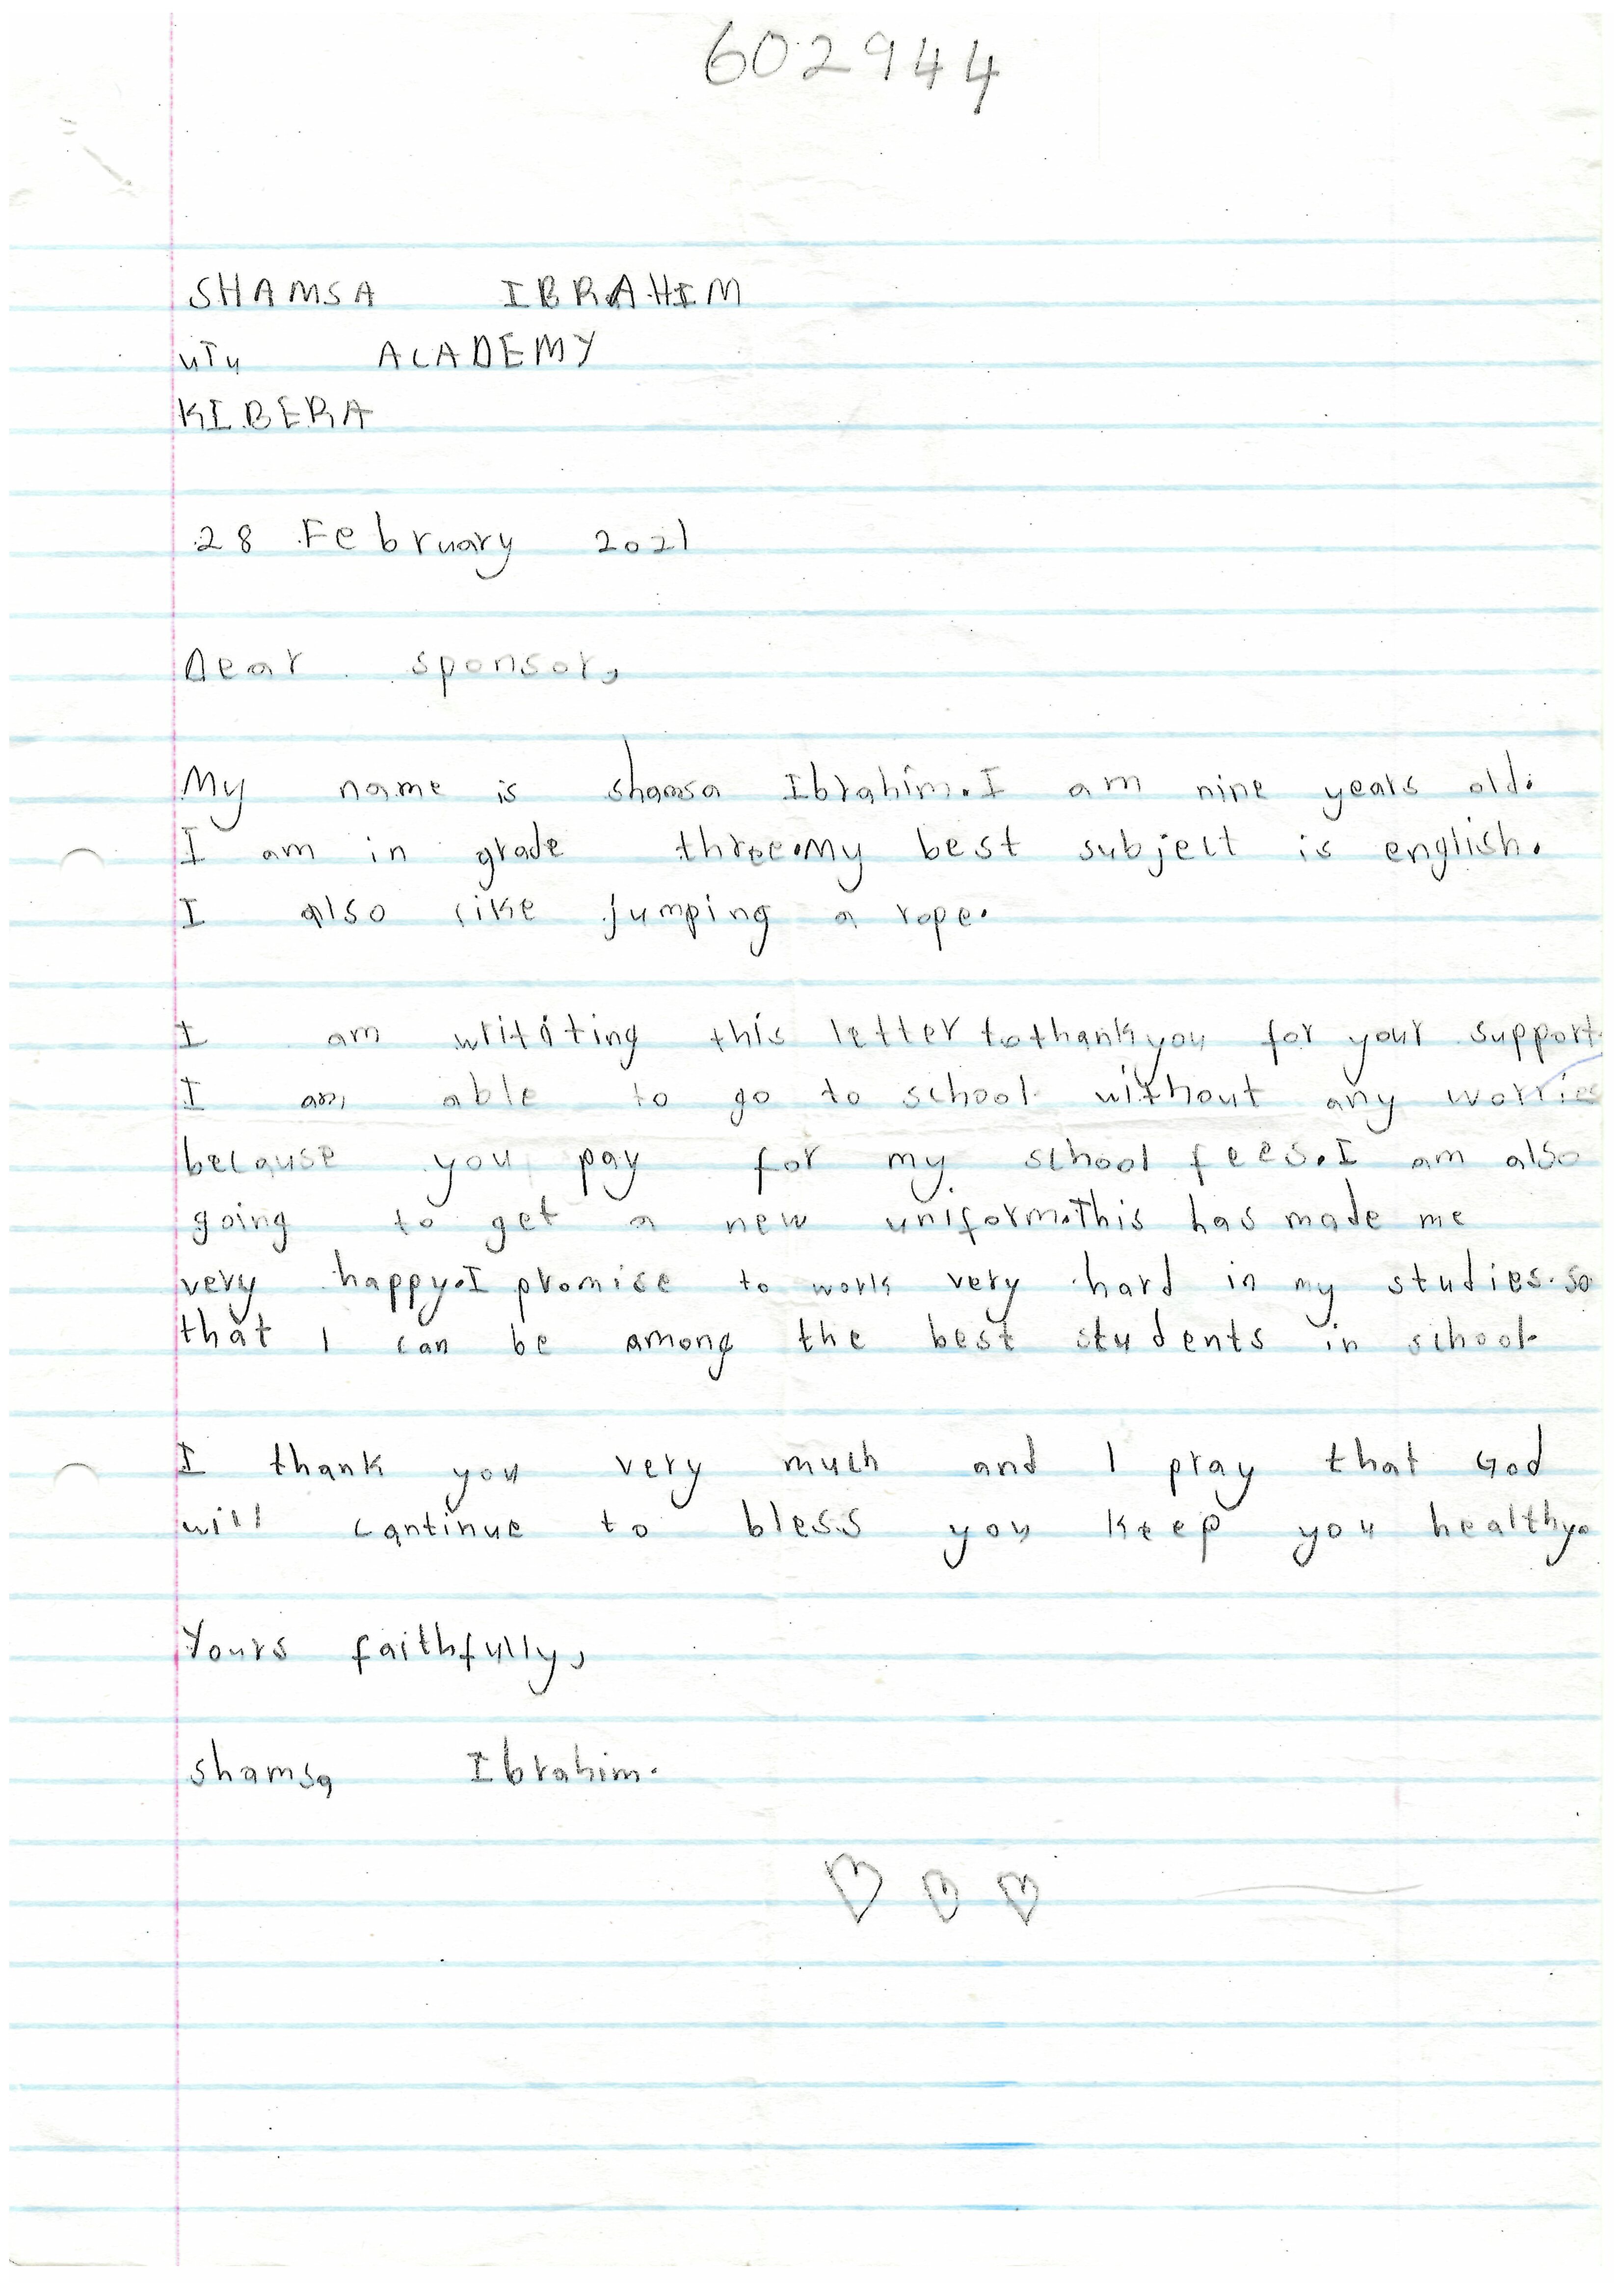 602944
SHAMSA IBRAHIM
UTU ACADEMY
KIBERA
28 February 2021
Dear sponsor,
My name is shamsa Ibrahim. I am nine years old.
I am in grade three. My best subject is english.
I also like jumping a rope.
I am writiting this letter to thank you for your support.
I am able to go to school without any worries
because you pay for my school fees. I am also
going to get a new uniform. This has made me
very happy. I promise to work very hard in my studies. so
that I can be among the best students in school.
I thank you very much and I pray that God
will continue to bless you keep you healthy.
Yours faithfully,
shamsa Ibrahim.